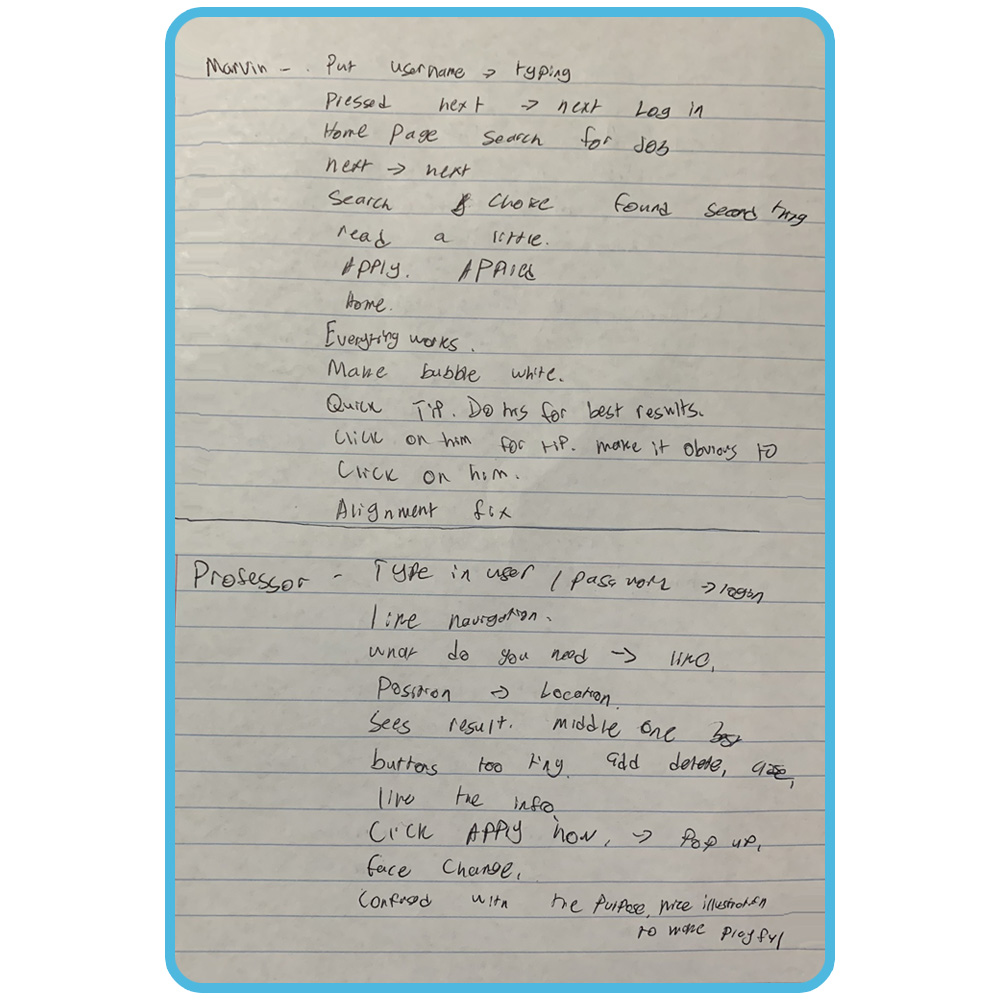 Marvin - . Put username → typing
Pressed next → next Log in
Home Page Search for Job
next → next
Search & Choice found second thing
read a little.
APPly. APPlied
Home.
Everything works.
Make bubble white.
Quick TiP. Do this for best results.
Click on him for tip. make it obvious to
Click on him.
Alignment fix
Professor - Type in user / password → login
like navigation.
what do you need → like,
Position → Location.
Sees result. middle one
buttons too tiny. add delete,
like the info,
Click APPly now, → Pop up,
face change,
Confused with the purpose, nice illustration
to make playful